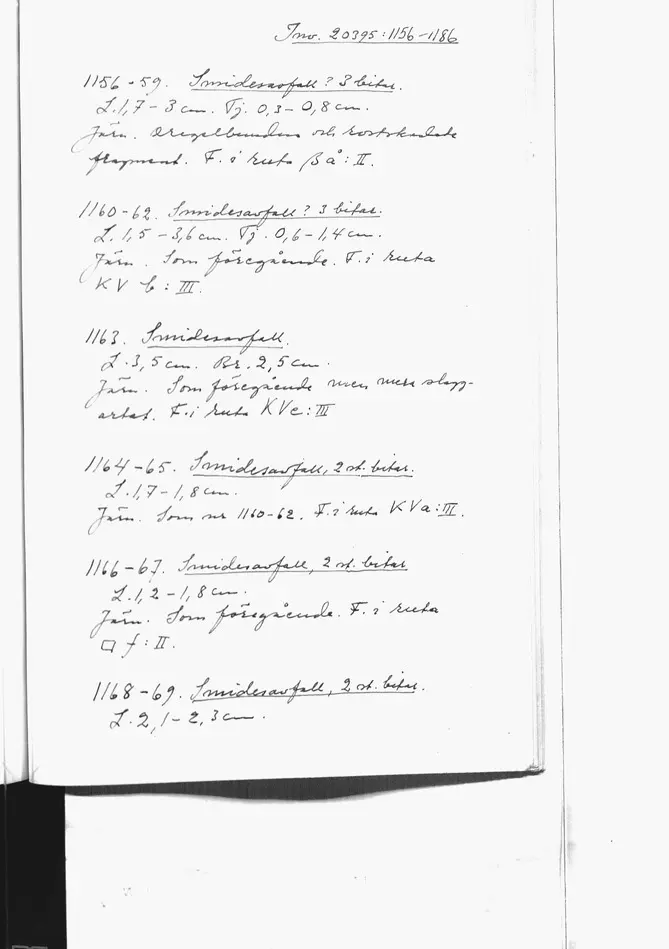 Inv. 20395:1156-1186
1156-59. Smidesavfall? 3 bitar.
L. 1,7-3 cm. Tj. 0,3-0,8 cm.
Järn. Oregelbundna och rostskadade
fragment. F. i ruta Bå:II.
1160-62. Smidesavfall? 3 bitar.
L. 1,5-3,6 cm. Tj. 0,6-1,4 cm.
Järn. Som föregående. F. i ruta
KV b:III.
1163. Smidesavfall.
L. 3,5 cm. Br. 2,5 cm.
Järn. Som föregående men mera slagg-
artat. F. i ruta KVc:III
1164-65. Smidesavfall, 2 st. bitar.
L. 1,7-1,8 cm.
Järn. Som nr 1160-62. F. i ruta KVa:III.
1166-67. Smidesavfall, 2 st. bitar
L. 1,2-1,8 cm.
Järn. Som föregående. F. i ruta
f:II.
1168-69. Smidesavfall, 2 st. bitar.
L. 2,1-2,3 cm.